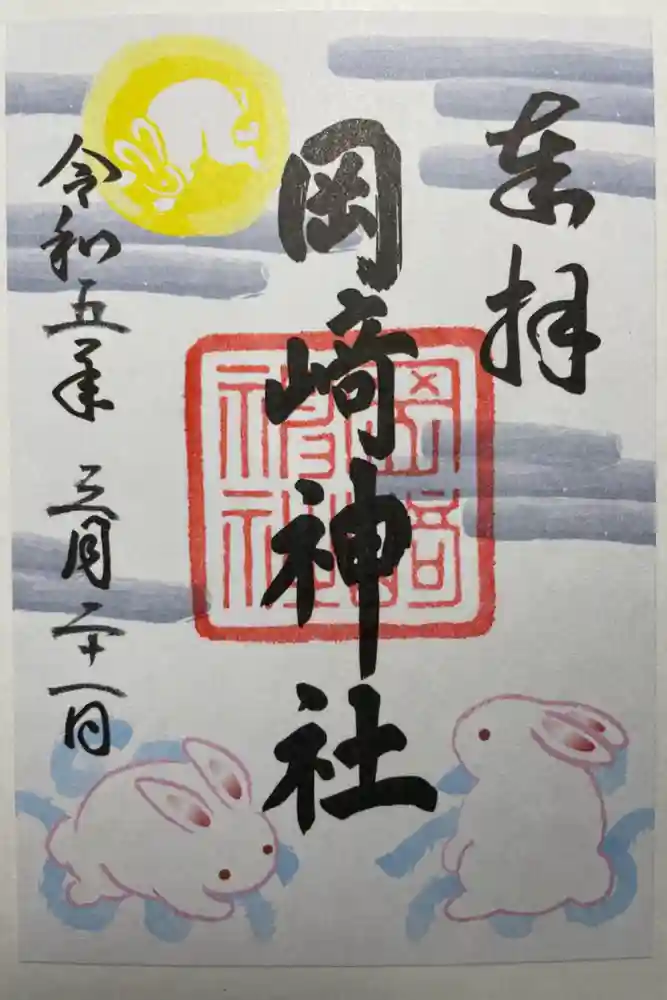 奉拝
岡﨑神社
岡崎神社
令和五年 三月二十一日